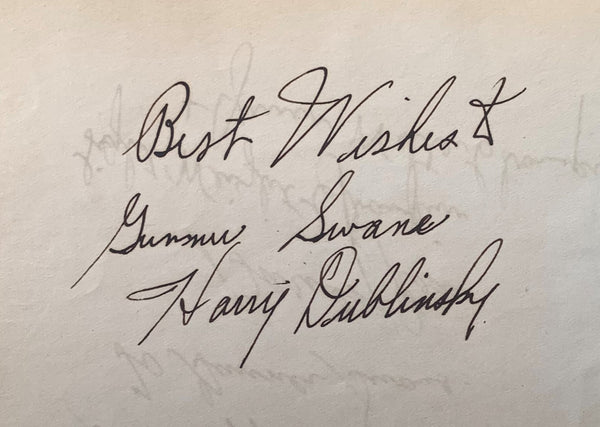 Best Wishes &
Gunnu Swane
Harry Dublinsky